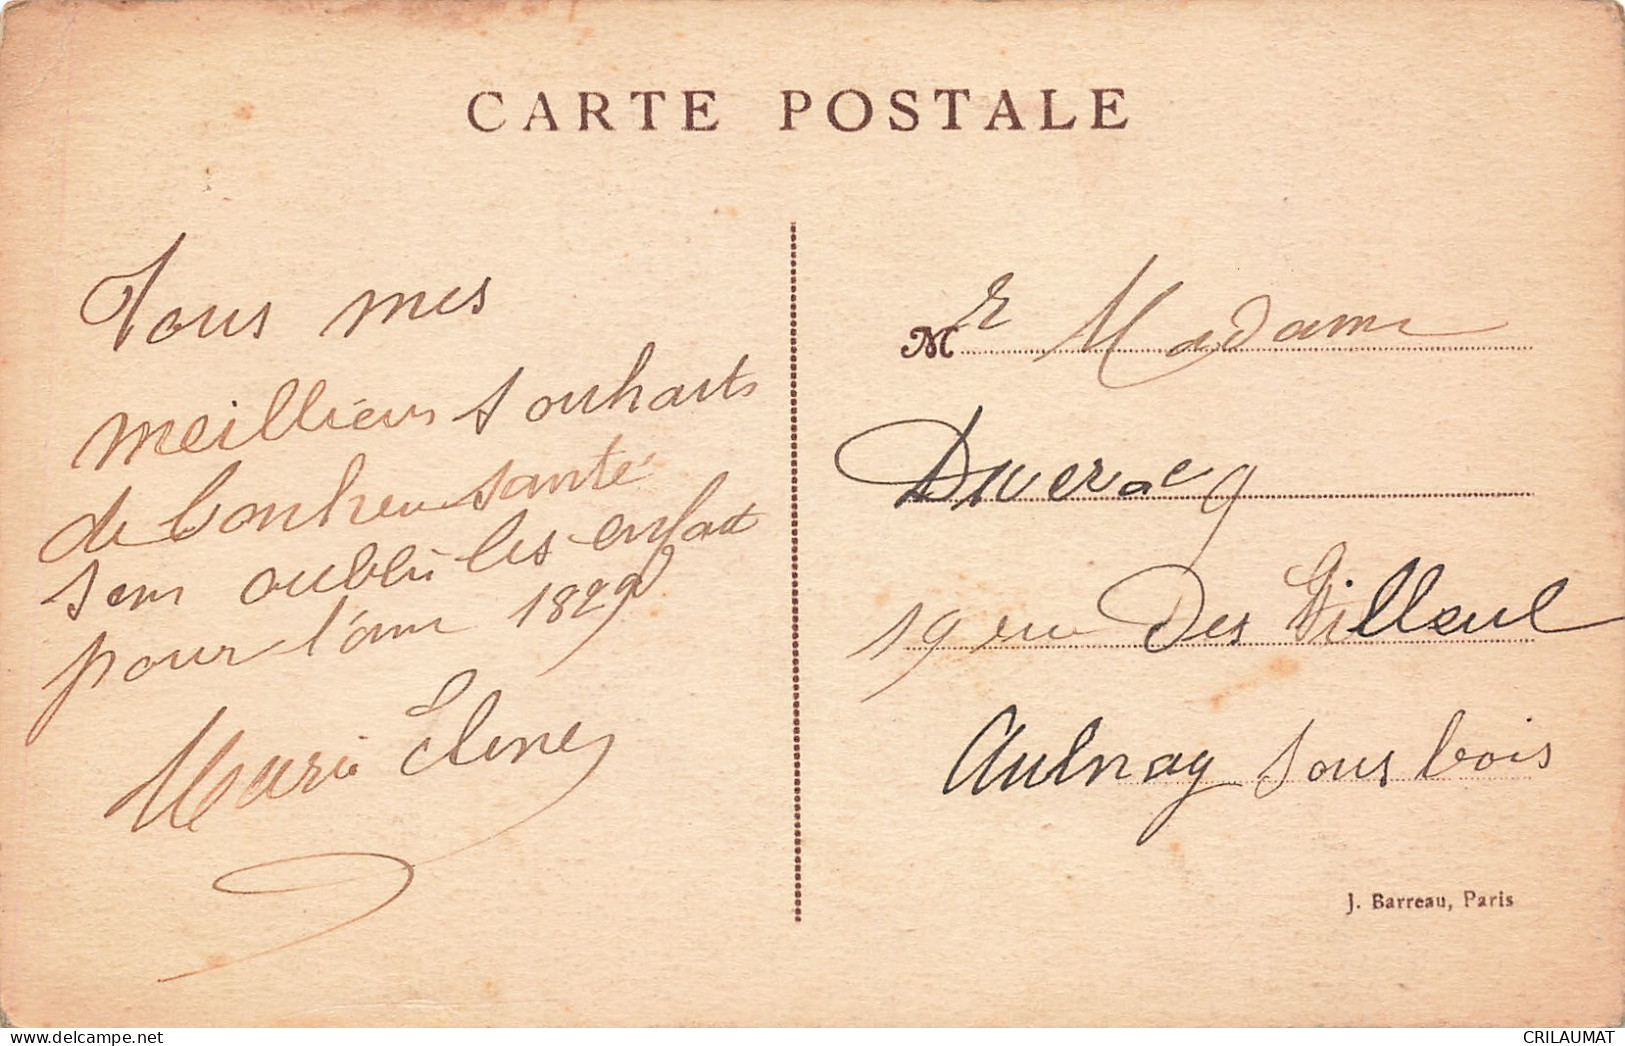 CARTE POSTALE
Tous mes
meillieurs souhaits
de bonheur santé
sens oublié les enfant
pour l'ann 1829
Marie
M r Madame
19 rue Des Tilleul
Aulnay sous bois
J. Barreau, Paris
www.delcampe.net
CRILAUMAT